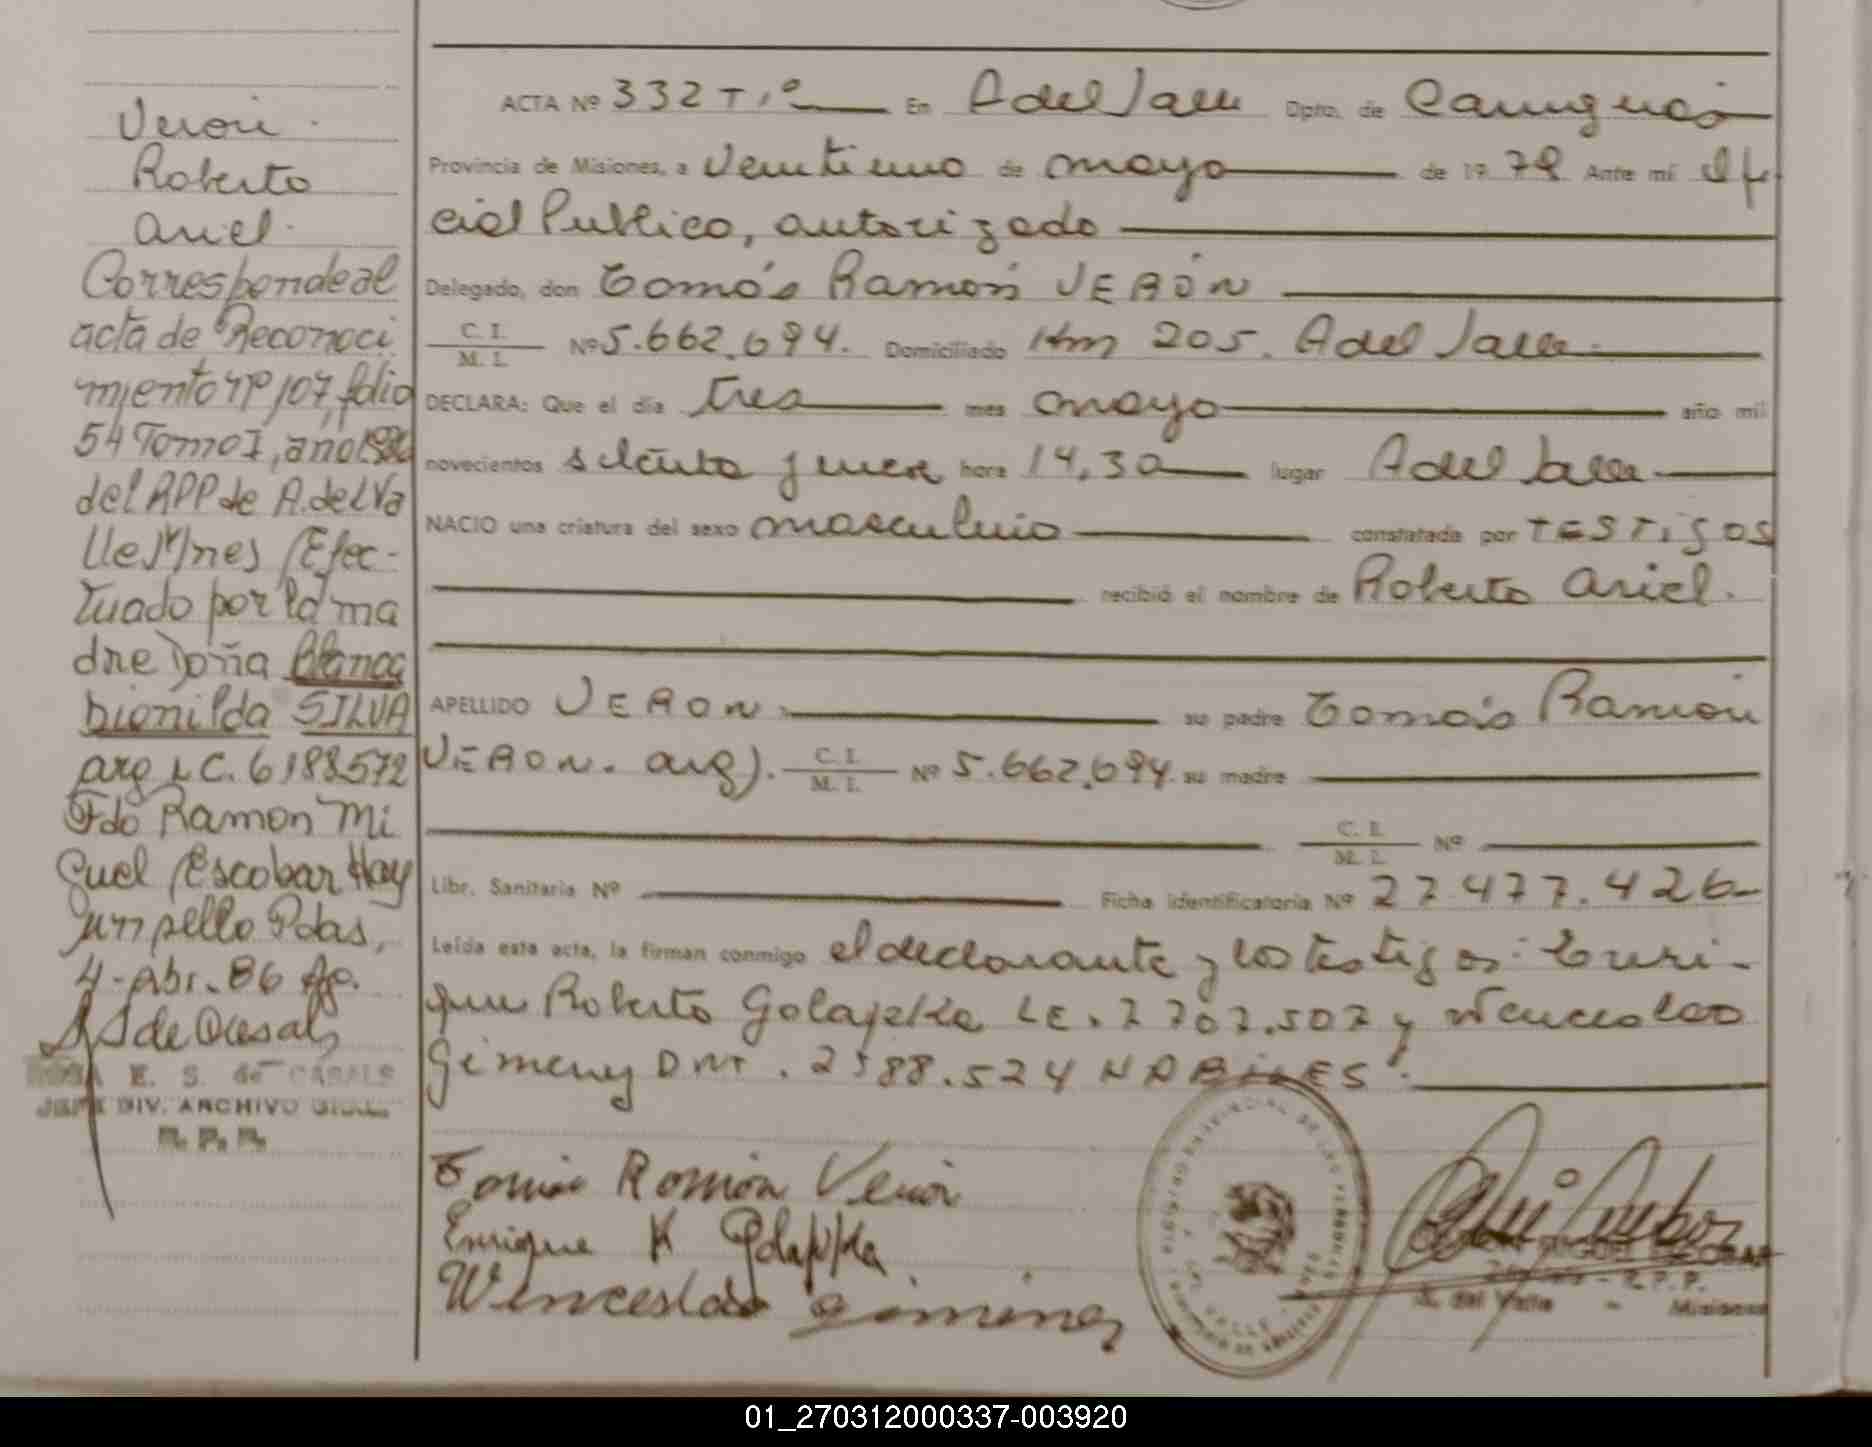 Veron
Roberto
Ariel.
Corresponde al
acta de Reconoci
miento nº 107, folio
54 Tomo I, año
del RPP de A. del Va
lle Mnes Efec-
tuado por la ma
dre Doña Blanca
Dionilda SILVA
arg L C. 6188572
Fdo Ramon Mi
guel Escobar Hay
un sello Pdas,
4-Abr.-86
E. S. de CASALS
JEFA DIV. ARCHIVO GRAL.
R. P. P.
ACTA Nº 332 T.Iº En A del Valle Dpto. de Cainguás
Provincia de Misiones, a veintiuno de mayo de 1979 Ante mí Ofi
cial Publico, autorizado
Delegado, don Tomás Ramón VERÓN
C. I.
M. I. Nº 5.662.694. Domiciliado Km 205. A del Valle
DECLARA: Que el día tres mes mayo año mil
novecientos setenta y nueve hora 14,30 lugar A del Valle
NACIO una criatura del sexo masculino constatada por TESTIGOS
recibió el nombre de Roberto Ariel.
APELLIDO VERON su padre Tomás Ramón
VERON. arg). C. I.
M. I. Nº 5.662.694. su madre
C. I.
M. I. Nº
Libr. Sanitaria Nº Ficha identificatoria Nº 27.477.426-
Leída esta acta, la firman conmigo el declarante y los testigos: Enri-
que Roberto Golapka LE. 7707.507 y Wenceslao
Gimeny DNI. 2588.524 HABILES.
Tomás Ramón Verón
Enrique K Golapka
Wenceslao Gimenez
RAMON MIGUEL ESCOBAR
R.P.P.
A. del Valle - Misiones
01_270312000337-003920